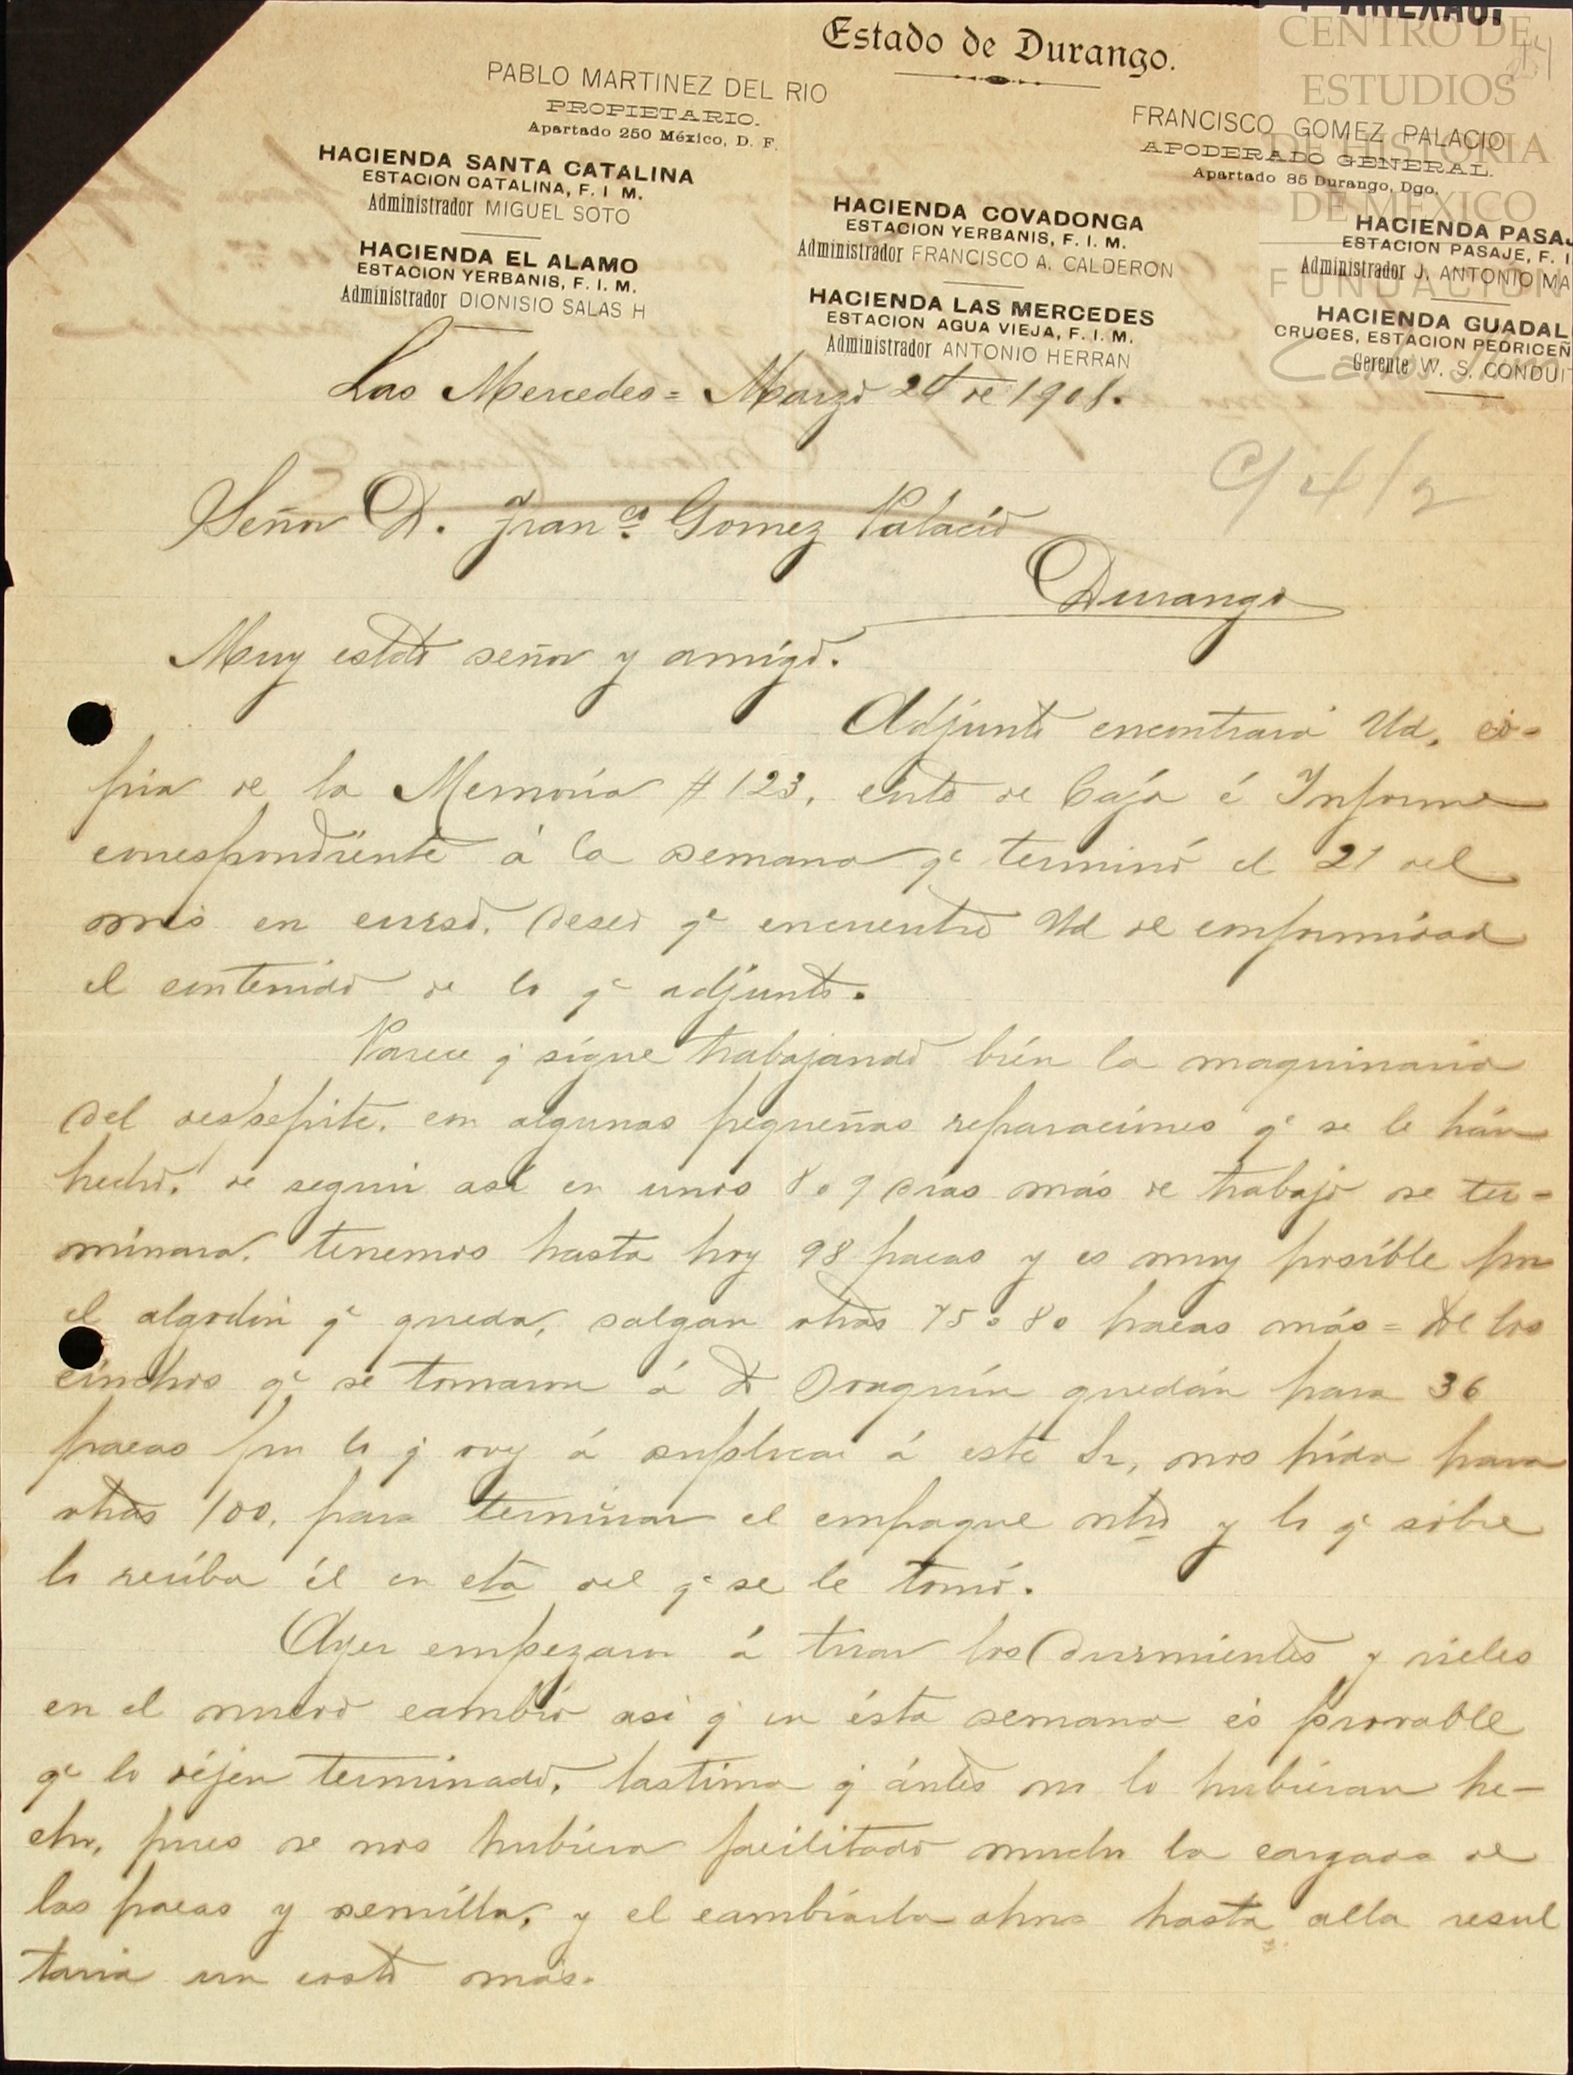 Y ANEXAS.
Estado de Durango.
CENTRO DE
ESTUDIOS
DE HISTORIA
DE MEXICO
FUNDACION
Carlos Slim
PABLO MARTINEZ DEL RIO
PROPIETARIO.
Apartado 250 México, D. F.
FRANCISCO GOMEZ PALACIO
APODERADO GENERAL.
Apartado 85 Durango, Dgo.
HACIENDA SANTA CATALINA
ESTACION CATALINA, F. I. M.
Administrador MIGUEL SOTO
HACIENDA EL ALAMO
ESTACION YERBANIS, F. I. M.
Administrador DIONISIO SALAS H
HACIENDA COVADONGA
ESTACION YERBANIS, F. I. M.
Administrador FRANCISCO A. CALDERON
HACIENDA LAS MERCEDES
ESTACION AGUA VIEJA, F. I. M.
Administrador ANTONIO HERRAN
HACIENDA PASAJ
ESTACION PASAJE, F. I
Administrador J. ANTONIO MA
HACIENDA GUADAL
CRUCES, ESTACION PEDRICEÑ
Gerente W. S. CONDUIT
Las Mercedes = Marzo 24 de 1908.
C/ 4/2
Señor D. Franco. Gomez Palacio
Durango
Muy estdo señor y amigo.
Adjunto encontrará Ud, co-
pia de la Memória # 123, cnta de Caja é Informe
correspondiente á la semana qe terminó el 21 del
mes en curso. Deseo qe encuentre Ud de conformidad
el contenido de lo qe adjunto.
Parece q sigue trabajando bién la maquinaria
del despepite, con algunas pequeñas reparaciones qe se le hán
hecho, de seguir asi en unos 8 o 9 dias más de trabajo se ter-
minara. tenemos hasta hoy 98 pacas y es muy posible por
el algodón qe queda, salgan otras 75 o 80 pacas más = De los
cinchos qe se tomaron á D Joaquín quedán para 36
pacas por lo q voy á suplicar á este Sr, nos pida para
otras 100, para terminar el empaque ntro y lo qe sobre
lo reciba él en cta del qe se le tomó.
Ayer empezaron á tirar los durmientes y rieles
en el nuevo cambio asi q en ésta semana és provable
qe lo déjen terminado, lastima q ántes no lo hubieran he-
cho, pues se nos hubiera facilitado mucho la cargada de
las pacas y semilla, y el cambiarla ahora hasta alla resul
taria un costo más.